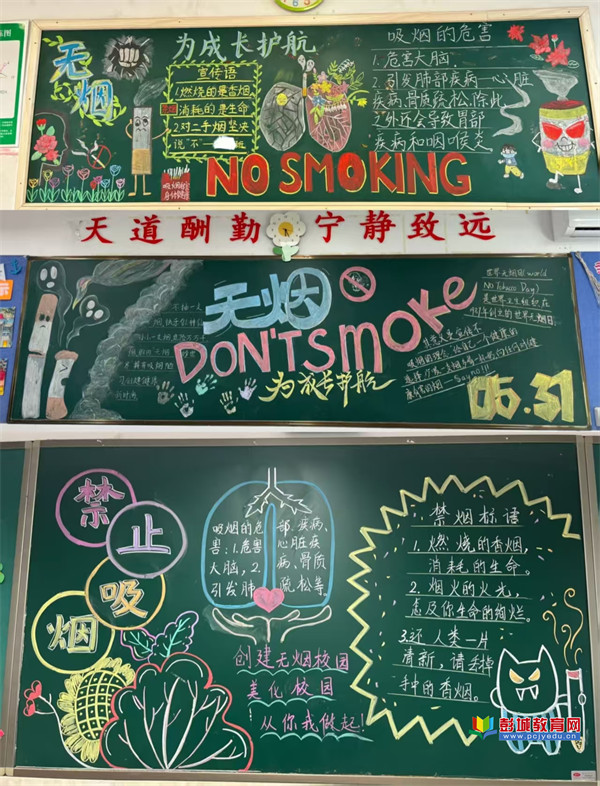 无烟
为成长护航
宣传语
1.燃烧的是香烟,
消耗的是生命
2.对二手烟坚决
说"不"
NO SMOKING
吸烟的危害
1.危害大脑,
2.引发肺部疾病—心脏
疾病,骨质疏松,除此
之外还会导致胃部
疾病和咽喉炎
天道酬勤 宁静致远
无烟
DON'T SMOKE
为成长护航
世界无烟日(world
No Tobacco Day)
是世界卫生组织在
05.31
禁止吸烟
吸烟的危
害:1.危害
大脑,2.
引发肺
部疾病、
心脏疾
病、骨质
疏松等。
创建无烟校园
美化校园
从你我做起!
禁烟标语
1.燃烧的香烟,
消耗的生命。
2.烟火的火光,
怎及你生命的绚烂。
3.还人类一片
清新,请丢掉
手中的香烟。
彭城教育网
www.pcjyedu.cn